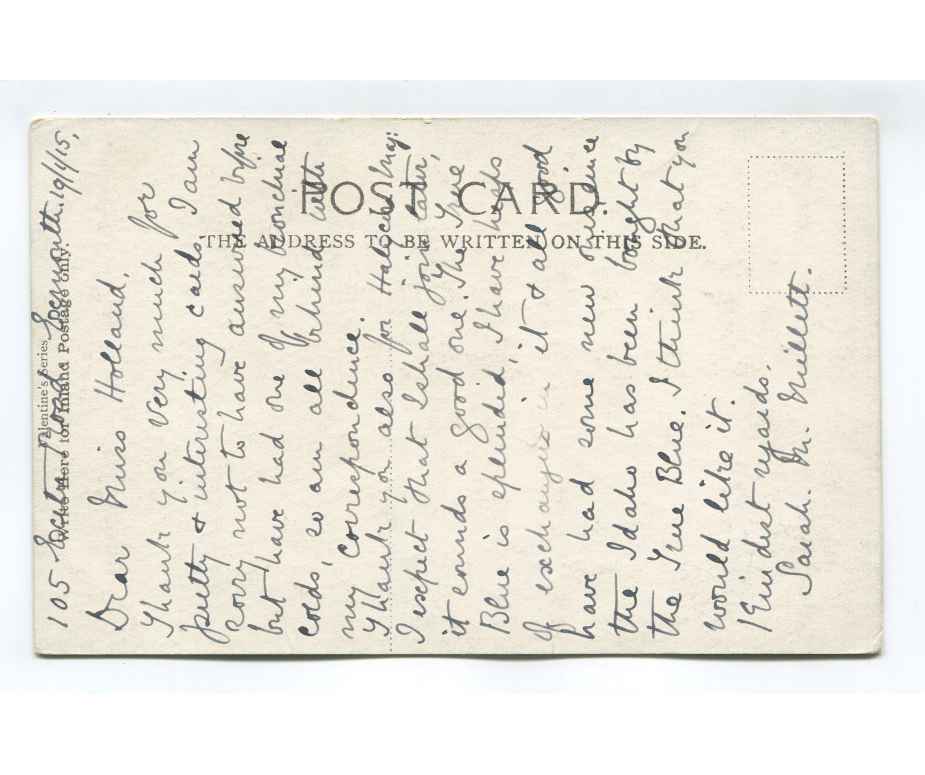 POST CARD.
THE ADDRESS TO BE WRITTEN ON THIS SIDE.
Valentine's Series
Write Here for Inland Postage only.
105 Road 19/1/15.
Dear Miss Holland,
Thank you very much for
pretty & interesting cards. I am
sorry not to have answered before
but have had one of my bronchial
colds, so am all behind with
my correspondence.
Thank you also for Halycon Mag:
I expect that I shall join later,
it sounds a good one. The True
Blue is splendid, I have heaps
of exchanges in it & all good
have had some new ones since
the Idaho has been bought by
the True Blue. I think that you
would like it.
Kindest regards.
Sarah. M. Millett.